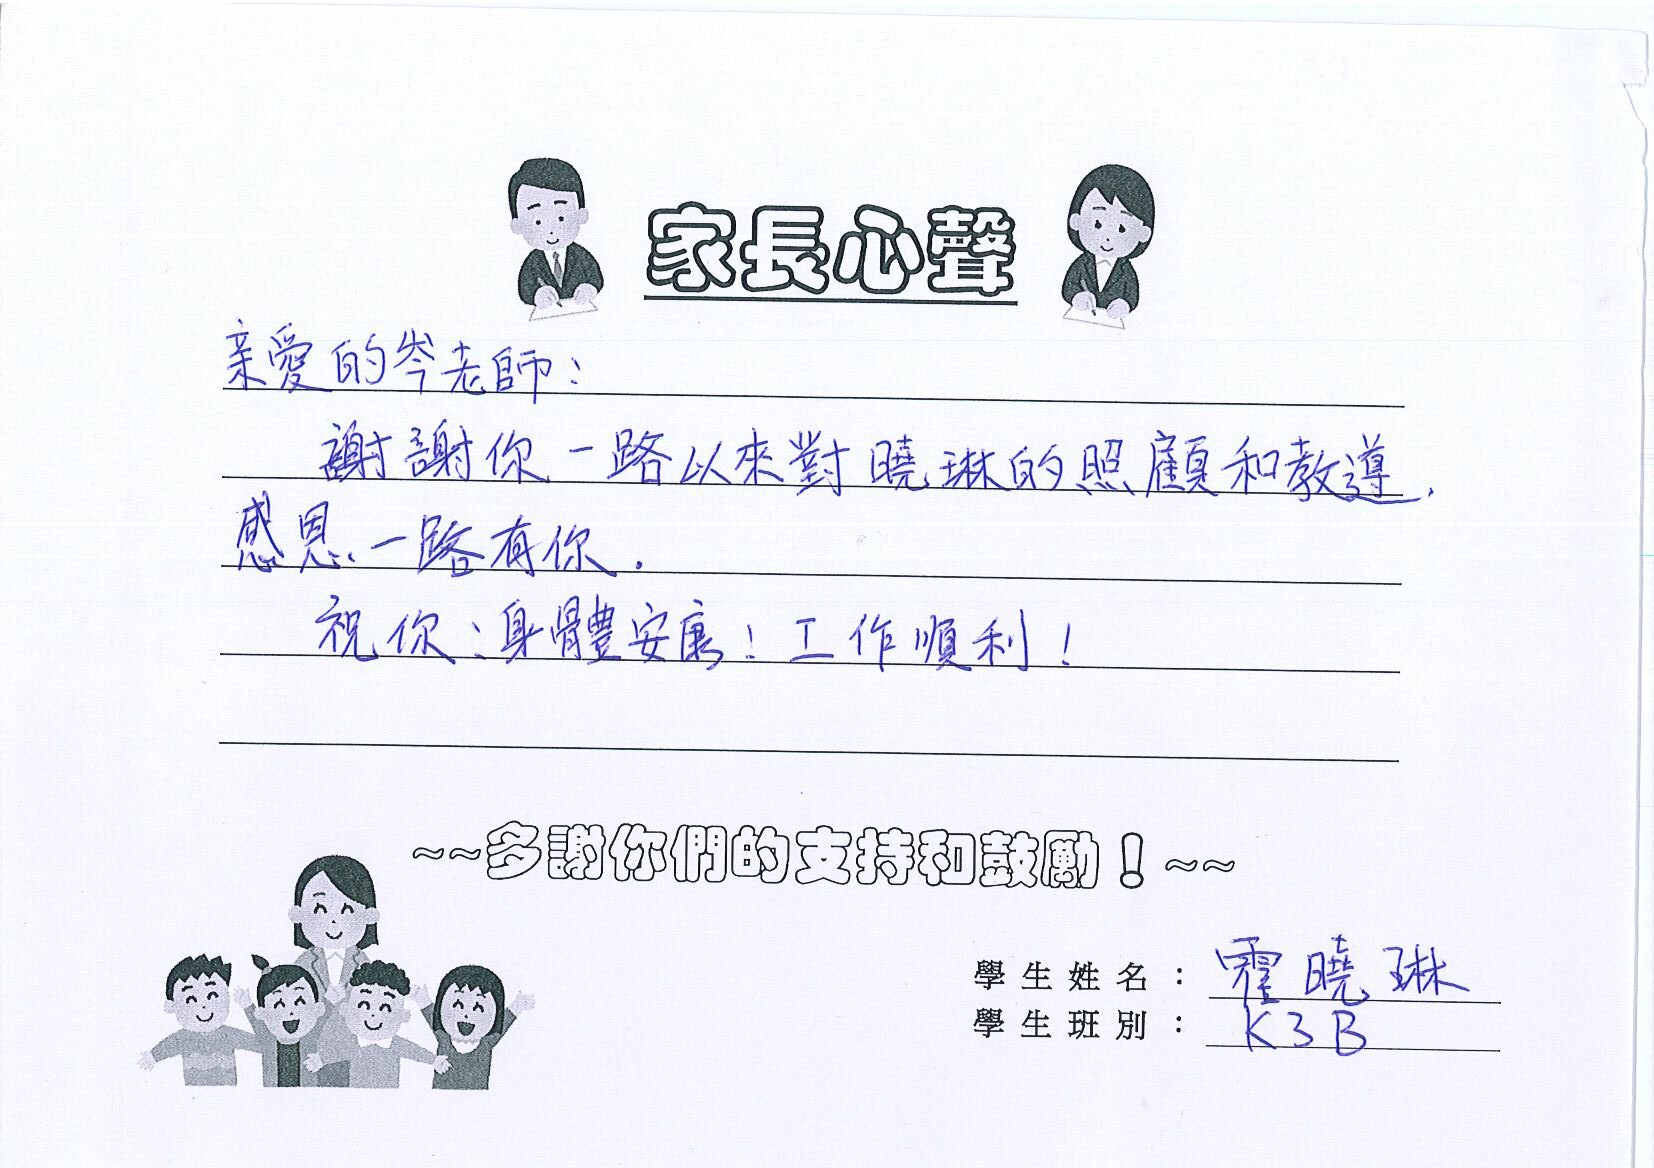 家長心聲
亲愛的岑老師：
謝謝你一路以來對曉琳的照顧和教導,
感恩一路有你.
祝你：身體安康！工作順利！
~~多謝你們的支持和鼓勵！~~
學生姓名：霍曉琳
學生班別：K3B